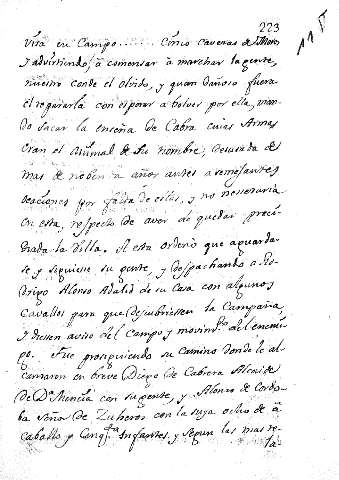 223
115
vira en Campo...... Cinco caveras de Moros
y advirtiendo, â comensar â marchar la gente,
nuestro conde el olvido, y quan dañoso fuera
el reguiarlâ con esperar a bolver por ella, man-
do sacar la enseña de Cabra cuias Armas
eran el animal de su nombre; desusada de
mas de neben ta años antes a remejantes
ocaciones por falta de ellas, y no nessesaria
en esta, respecto de aver de quedar preci-
tada la Villa. A esta ordenô que aguarda-
se y siguiese su gente, y despachando a Ro-
drigo Alonso Adalid de su Casa con algunos
Cavallos para que descubriessen la Campaña,
y diesen aviso del Campo y movim.to del enemi-
go. Fue prosiguiendo su camino donde le al-
canzaron en breve Diego de Cabrera Alcaide
de D.a Mencia con su gente, y Alonso de Cordo-
ba Señor de Zuheros con la suya ocho de â
caballo y Cinq.ta Infantes, y segun las mas re-
la-